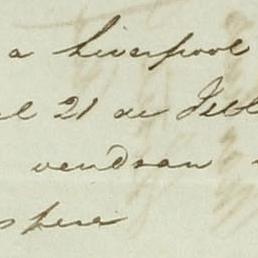 a Liverpool
el 21 de Feb
vendran
spera